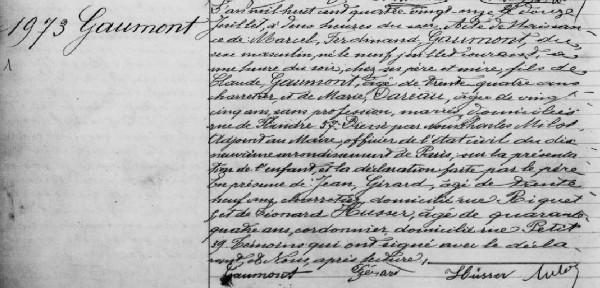 1973 Gaumont
L'an mil huit cent quatre vingt onze, le onze
juillet, à deux heures du soir, acte de naissan-
ce de Marcel, Ferdinand Gaumont, du
sexe masculin, né le neuf juillet courant, à
une heure du soir, chez ses père et mère, fils de
Claude Gaumont, âgé de trente quatre ans
charretier, et de Marie, Dareau, âgée de vingt
cinq ans, sans profession, mariés, domiciliés
rue de Flandre 37. Dressé par nous Charles Milot
Adjoint au Maire, officier de l'état civil du dix
neuvième arrondissement de Paris, sur la présenta-
tion de l'enfant, et la déclaration faite par le père
En présence de Jean, Gérard, âgé de trente
neuf ans, charretier, domicilié rue Riquet
et de Léonard Husser, âgé de quarante
quatre ans, cordonnier, domicilié rue Petit
39. Témoins qui ont signé avec le décla-
rant, et Nous, après lecture,
Gaumont Gérard Hüsser Milot